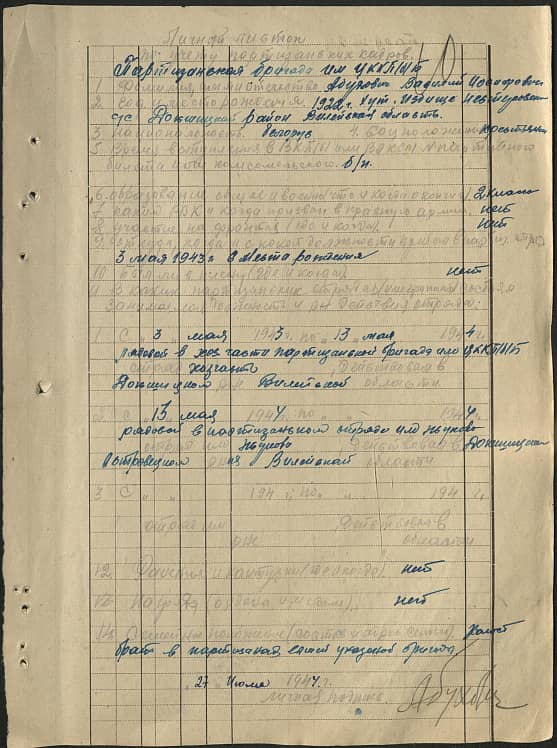 Личной листок
по учету партизанских кадров
Партизанская бригада им ЦККП(б)Б
Фамилия имя и отчество Абухович Василий Иосифович
2. Год и место рождения 1922 г. хут.
с/с Докшицкий район Вилейская область.
3 Национальность белорус 4. Соц положение крестьянин
5 Время вступления в ВКП(б) или ВЛКСМ № партийного
билета или комсомольского б/п.
6. образование общее и военное (что и когда окончил) 2 класса
7. каким РВК и когда призван в красную армию нет
8. участие на фронтах (где и когда) нет
9. откуда, когда и с какой должности прибыл в парт. отряд
3 мая 1943 г. с места рождения
10 был ли в плену (где и когда) нет
11 в каких партизанских отрядах
занимал должность и р-н действия отряда:
1 С 3 мая 1943 г. по 13 мая 1944 г.
рядовой в хозчасти партизанской бригады им ЦККП(б)Б
отряд хозчасть действовал в
Докшицком р-не Вилейской области.
2 С 13 мая 1944 г. по " " 194 г.
рядовой в партизанском отряде им
отряд им действовал в Докшицком
Островецком р-не Вилейской области
3 С " " 194 г. по " " 194 г.
отряд им действовал в
р-не области
12 Ранения и контузии (где и когда) нет
13 Награды нет
14 Семейное положение холост
брат в партизанах
"27" Июля 1944 г.
личная подпись Абухович